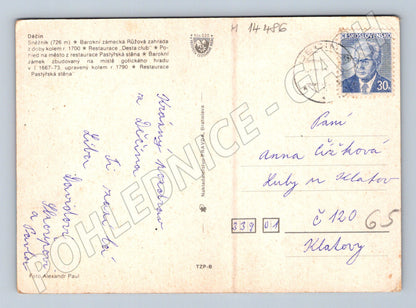 Děčín
Sněžník (726 m) ★ Barokní zámecká Růžová zahrada
z doby kolem r. 1700 ★ Restaurace „Desta club“ ★ Po-
hled na město z restaurace Pastýřská stěna ★ Barokní
zámek zbudovaný na místě gotického hradu
v l. 1667-73, upravený kolem r. 1790 ★ Restaurace
"Pastýřská stěna"
H 14486
ČESKOSLOVENSKO
30h
Krásný pozdrav
z Děčína
Ti zasílá
Liba
Davidová
a Pavla
Foto Alexandr Paul
Bratislava
TZP-B
Paní
Anna Čížková
Luby u Klatov
č 120
65
339 01
Klatovy
POHLEDNICE - GAJ